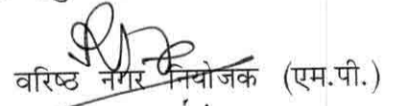 वरिष्ठ नगर नियोजक (एम.पी.)